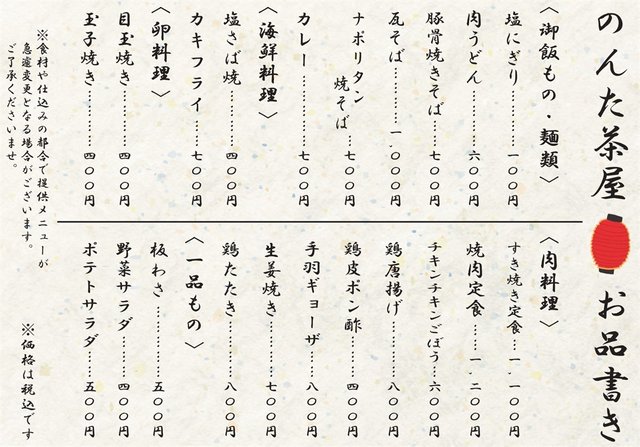 のんた茶屋 お品書き
〈御飯もの・麺類〉
塩にぎり……一〇〇円
肉うどん……六〇〇円
豚骨焼きそば……七〇〇円
瓦そば……一、〇〇〇円
ナポリタン
焼そば……七〇〇円
カレー……七〇〇円
〈海鮮料理〉
塩さば焼……四〇〇円
カキフライ……七〇〇円
〈卵料理〉
目玉焼き……四〇〇円
玉子焼き……四〇〇円
※食材や仕込みの都合で提供メニューが
急遽変更となる場合がございます。
ご了承くださいませ。
〈肉料理〉
すき焼き定食…一、一〇〇円
焼肉定食……一、二〇〇円
チキンチキンごぼう…六〇〇円
鶏唐揚げ……八〇〇円
鶏皮ポン酢……四〇〇円
手羽ギョーザ……八〇〇円
生姜焼き……七〇〇円
鶏たたき……八〇〇円
〈一品もの〉
板わさ……五〇〇円
野菜サラダ……四〇〇円
ポテトサラダ……五〇〇円
※価格は税込です